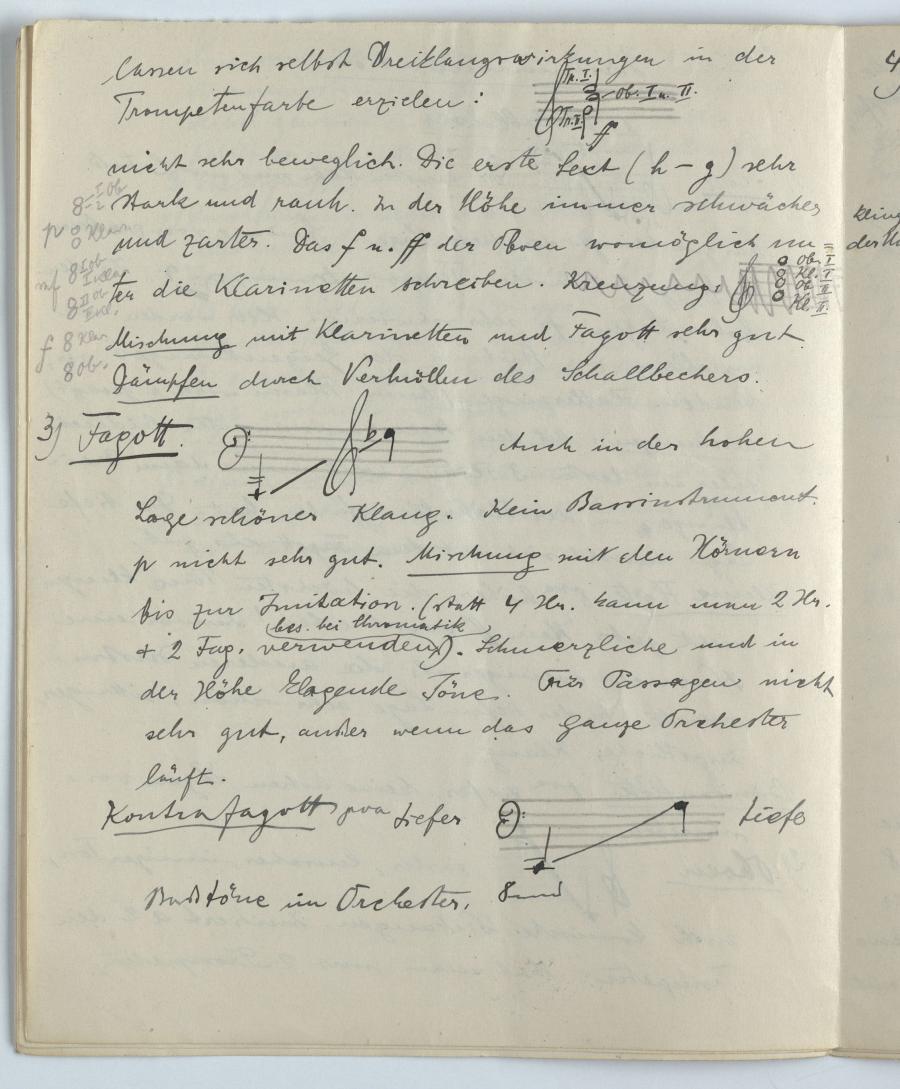 lassen sich selbst Dreiklangswirkungen in der
Trompetenfarbe erzielen:
Tr. I.
Ob. I u. II.
Tr. II.
ff
nicht sehr beweglich. Die erste Sext (h – g) sehr
stark und rauh. In der Höhe immer schwächer
und zarter. Das f u. ff der Oboen womöglich un=
ter die Klarinetten schreiben. Kreuzung:
Ob. I
Kl. I
Ob. II
Kl. II.
Mischung mit Klarinetten und Fagott sehr gut
Dämpfen durch Verhüllen des Schallbechers.
8 I Ob
p 8 Klar
mf 8 I Ob
I Klar
8 II Ob
f 8 Klar
8 Ob.
3) Fagott. Auch in der hohen
Lage schöner Klang. Kein Bassinstrument.
p nicht sehr gut. Mischung mit den Hörnern
bis zur Imitation. (statt 4 Hr. kann man 2 Hr.
bes. bei Chromatik
+ 2 Fag. verwenden). Schmerzliche und in
der Höhe klagende Töne. Für Passagen nicht
sehr gut, außer wenn das ganze Orchester
läuft.
Kontrafagott 8va tiefer tiefe
Baßtöne im Orchester.
4